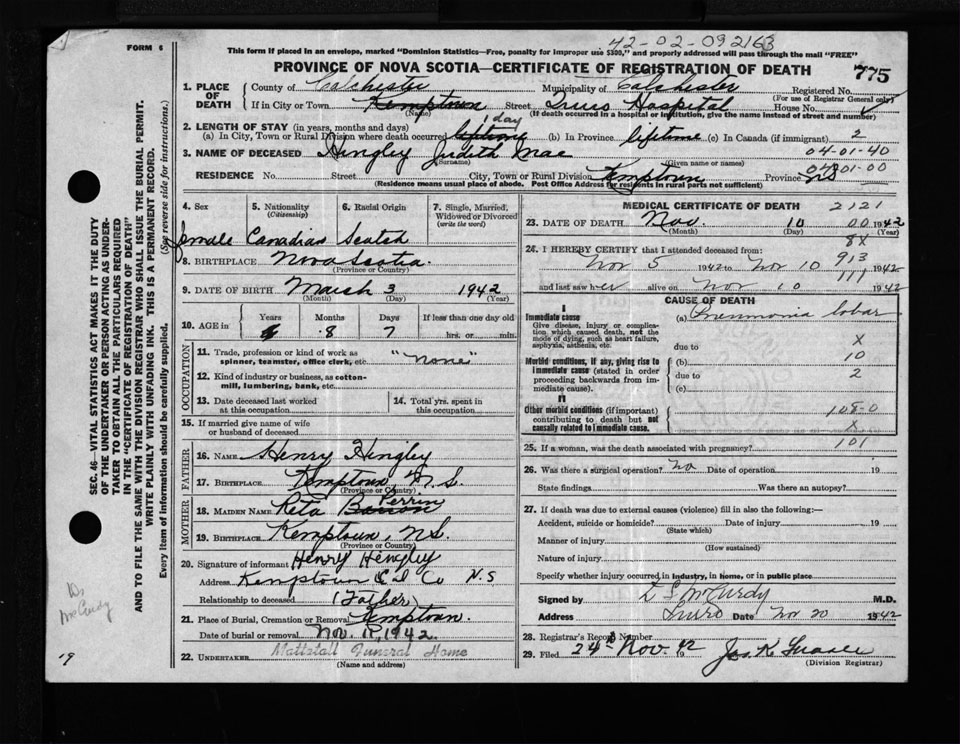 FORM 6
This form if placed in an envelope, marked "Dominion Statistics—Free, penalty for improper use $300," and properly addressed will pass through the mail "FREE"
42-02-092163
PROVINCE OF NOVA SCOTIA—CERTIFICATE OF REGISTRATION OF DEATH 775
1. PLACE OF DEATH County of Colchester Municipality of Colchester Registered No.
(For use of Registrar General only)
If in City or Town Kemptown Street Truro Hospital House No.
(Name) (If death occurred in a hospital or institution, give the name instead of street and number)
1 day
2. LENGTH OF STAY (in years, months and days)
(a) In City, Town or Rural Division where death occurred lifetime (b) In Province lifetime (c) In Canada (if immigrant) 2
04-01-40
3. NAME OF DECEASED Hingley Judith Mae
(Surname) (Given name or names)
RESIDENCE No. Street City, Town or Rural Division Kemptown Province NS
(Residence means usual place of abode. Post Office Address for residents in rural parts not sufficient)
4. Sex 5. Nationality (Citizenship) 6. Racial Origin 7. Single, Married, Widowed or Divorced (write the word)
female Canadian Scotch
8. BIRTHPLACE Nova Scotia.
(Province or Country)
9. DATE OF BIRTH March 3 1942
(Month) (Day) (Year)
10. AGE in Years Months Days If less than one day old
8 7 hrs. or min.
OCCUPATION
11. Trade, profession or kind of work as spinner, teamster, office clerk, etc. "None"
12. Kind of industry or business, as cotton-mill, lumbering, bank, etc.
13. Date deceased last worked at this occupation
14. Total yrs. spent in this occupation
15. If married give name of wife or husband of deceased
FATHER
16. NAME Henry Hingley
17. BIRTHPLACE Kemptown, N.S.
(Province or Country)
MOTHER
18. MAIDEN NAME Reta Perrin
19. BIRTHPLACE Kemptown, N.S.
(Province or Country)
20. Signature of informant Henry Hingley
Address Kemptown Col Co N.S
Relationship to deceased (Father)
21. Place of Burial, Cremation or Removal Kemptown.
Date of burial or removal Nov. 1942.
22. UNDERTAKER Mattatall Funeral Home
(Name and address)
MEDICAL CERTIFICATE OF DEATH 2121
23. DATE OF DEATH Nov. 10 00 1942
(Month) (Day) (Year)
8X
24. I HEREBY CERTIFY that I attended deceased from:
913
Nov 5 1942 to Nov 10 1942
111
and last saw her alive on Nov 10 1942
CAUSE OF DEATH
I
Immediate cause
Give disease, injury or complication which caused death, not the mode of dying, such as heart failure, asphyxia, asthenia, etc.
(a) Pneumonia lobar
X
due to
Morbid conditions, if any, giving rise to immediate cause (stated in order proceeding backwards from immediate cause).
(b)
10
due to 2
(c)
II
Other morbid conditions (if important) contributing to death but not causally related to immediate cause.
108-0
X
101
25. If a woman, was the death associated with pregnancy?
26. Was there a surgical operation? No Date of operation 19
State findings Was there an autopsy?
27. If death was due to external causes (violence) fill in also the following:—
Accident, suicide or homicide? Date of injury 19
(State which)
Manner of injury
(How sustained)
Nature of injury
Specify whether injury occurred in industry, in home, or in public place
Signed by McCurdy M.D.
Address Truro Date Nov 20 1942
28. Registrar's Record Number
29. Filed 24th Nov. 1942 Jas. K.
(Division Registrar)
SEC. 46—VITAL STATISTICS ACT MAKES IT THE DUTY OF THE UNDERTAKER OR PERSON ACTING AS UNDERTAKER TO OBTAIN ALL THE PARTICULARS REQUIRED IN THE "CERTIFICATE OF REGISTRATION OF DEATH" AND TO FILE THE SAME WITH THE DIVISION REGISTRAR WHO SHALL ISSUE THE BURIAL PERMIT.
WRITE PLAINLY WITH UNFADING INK. THIS IS A PERMANENT RECORD.
Every item of information should be carefully supplied. (See reverse side for instructions.)
Dr McCurdy
19